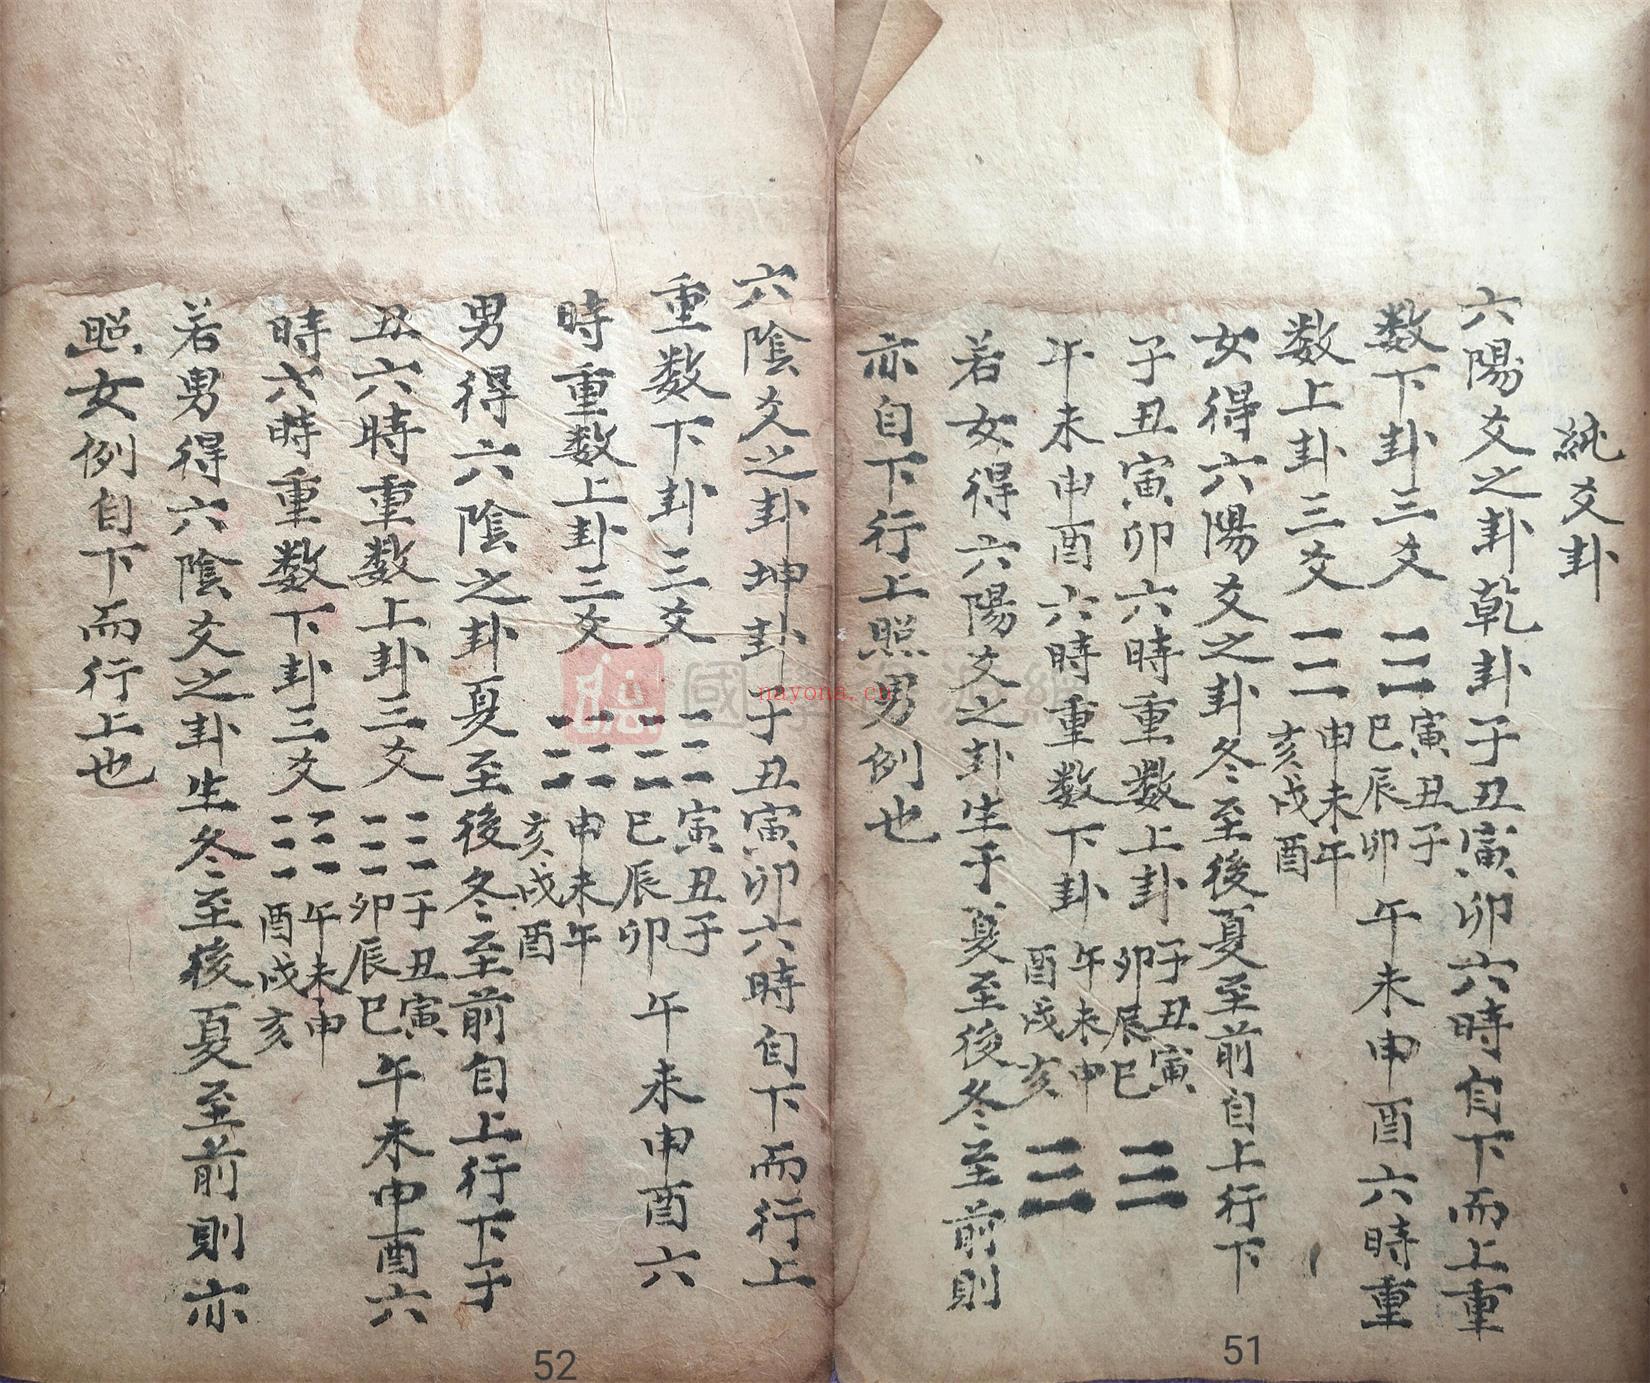 純爻卦
六陽爻之卦乾卦子丑寅卯六時自下而上重
数下卦三爻
寅丑子
巳辰卯
午未申酉六時重
数上卦三爻
申未午
亥戌酉
女得六陽爻之卦冬至後夏至前自上行下
子丑寅卯六時重数上卦
子丑寅
卯辰巳
午未申酉六時重数下卦
午未申
酉戌亥
若女得六陽爻之卦生于夏至後冬至前則
亦自下行上照男例也
51
六陰爻之卦坤卦子丑寅卯六時自下而行上
重数下卦三爻
寅丑子
巳辰卯
午未申酉六
時重数上卦三爻
申未午
亥戌酉
男得六陰之卦夏至後冬至前自上行下子
丑六時重数上卦三爻
子丑寅
卯辰巳
午未申酉六
時六時重数下卦三爻
午未申
酉戌亥
若男得六陰爻之卦生冬至後夏至前則亦
照女例自下而行上也
52
nayona.cn